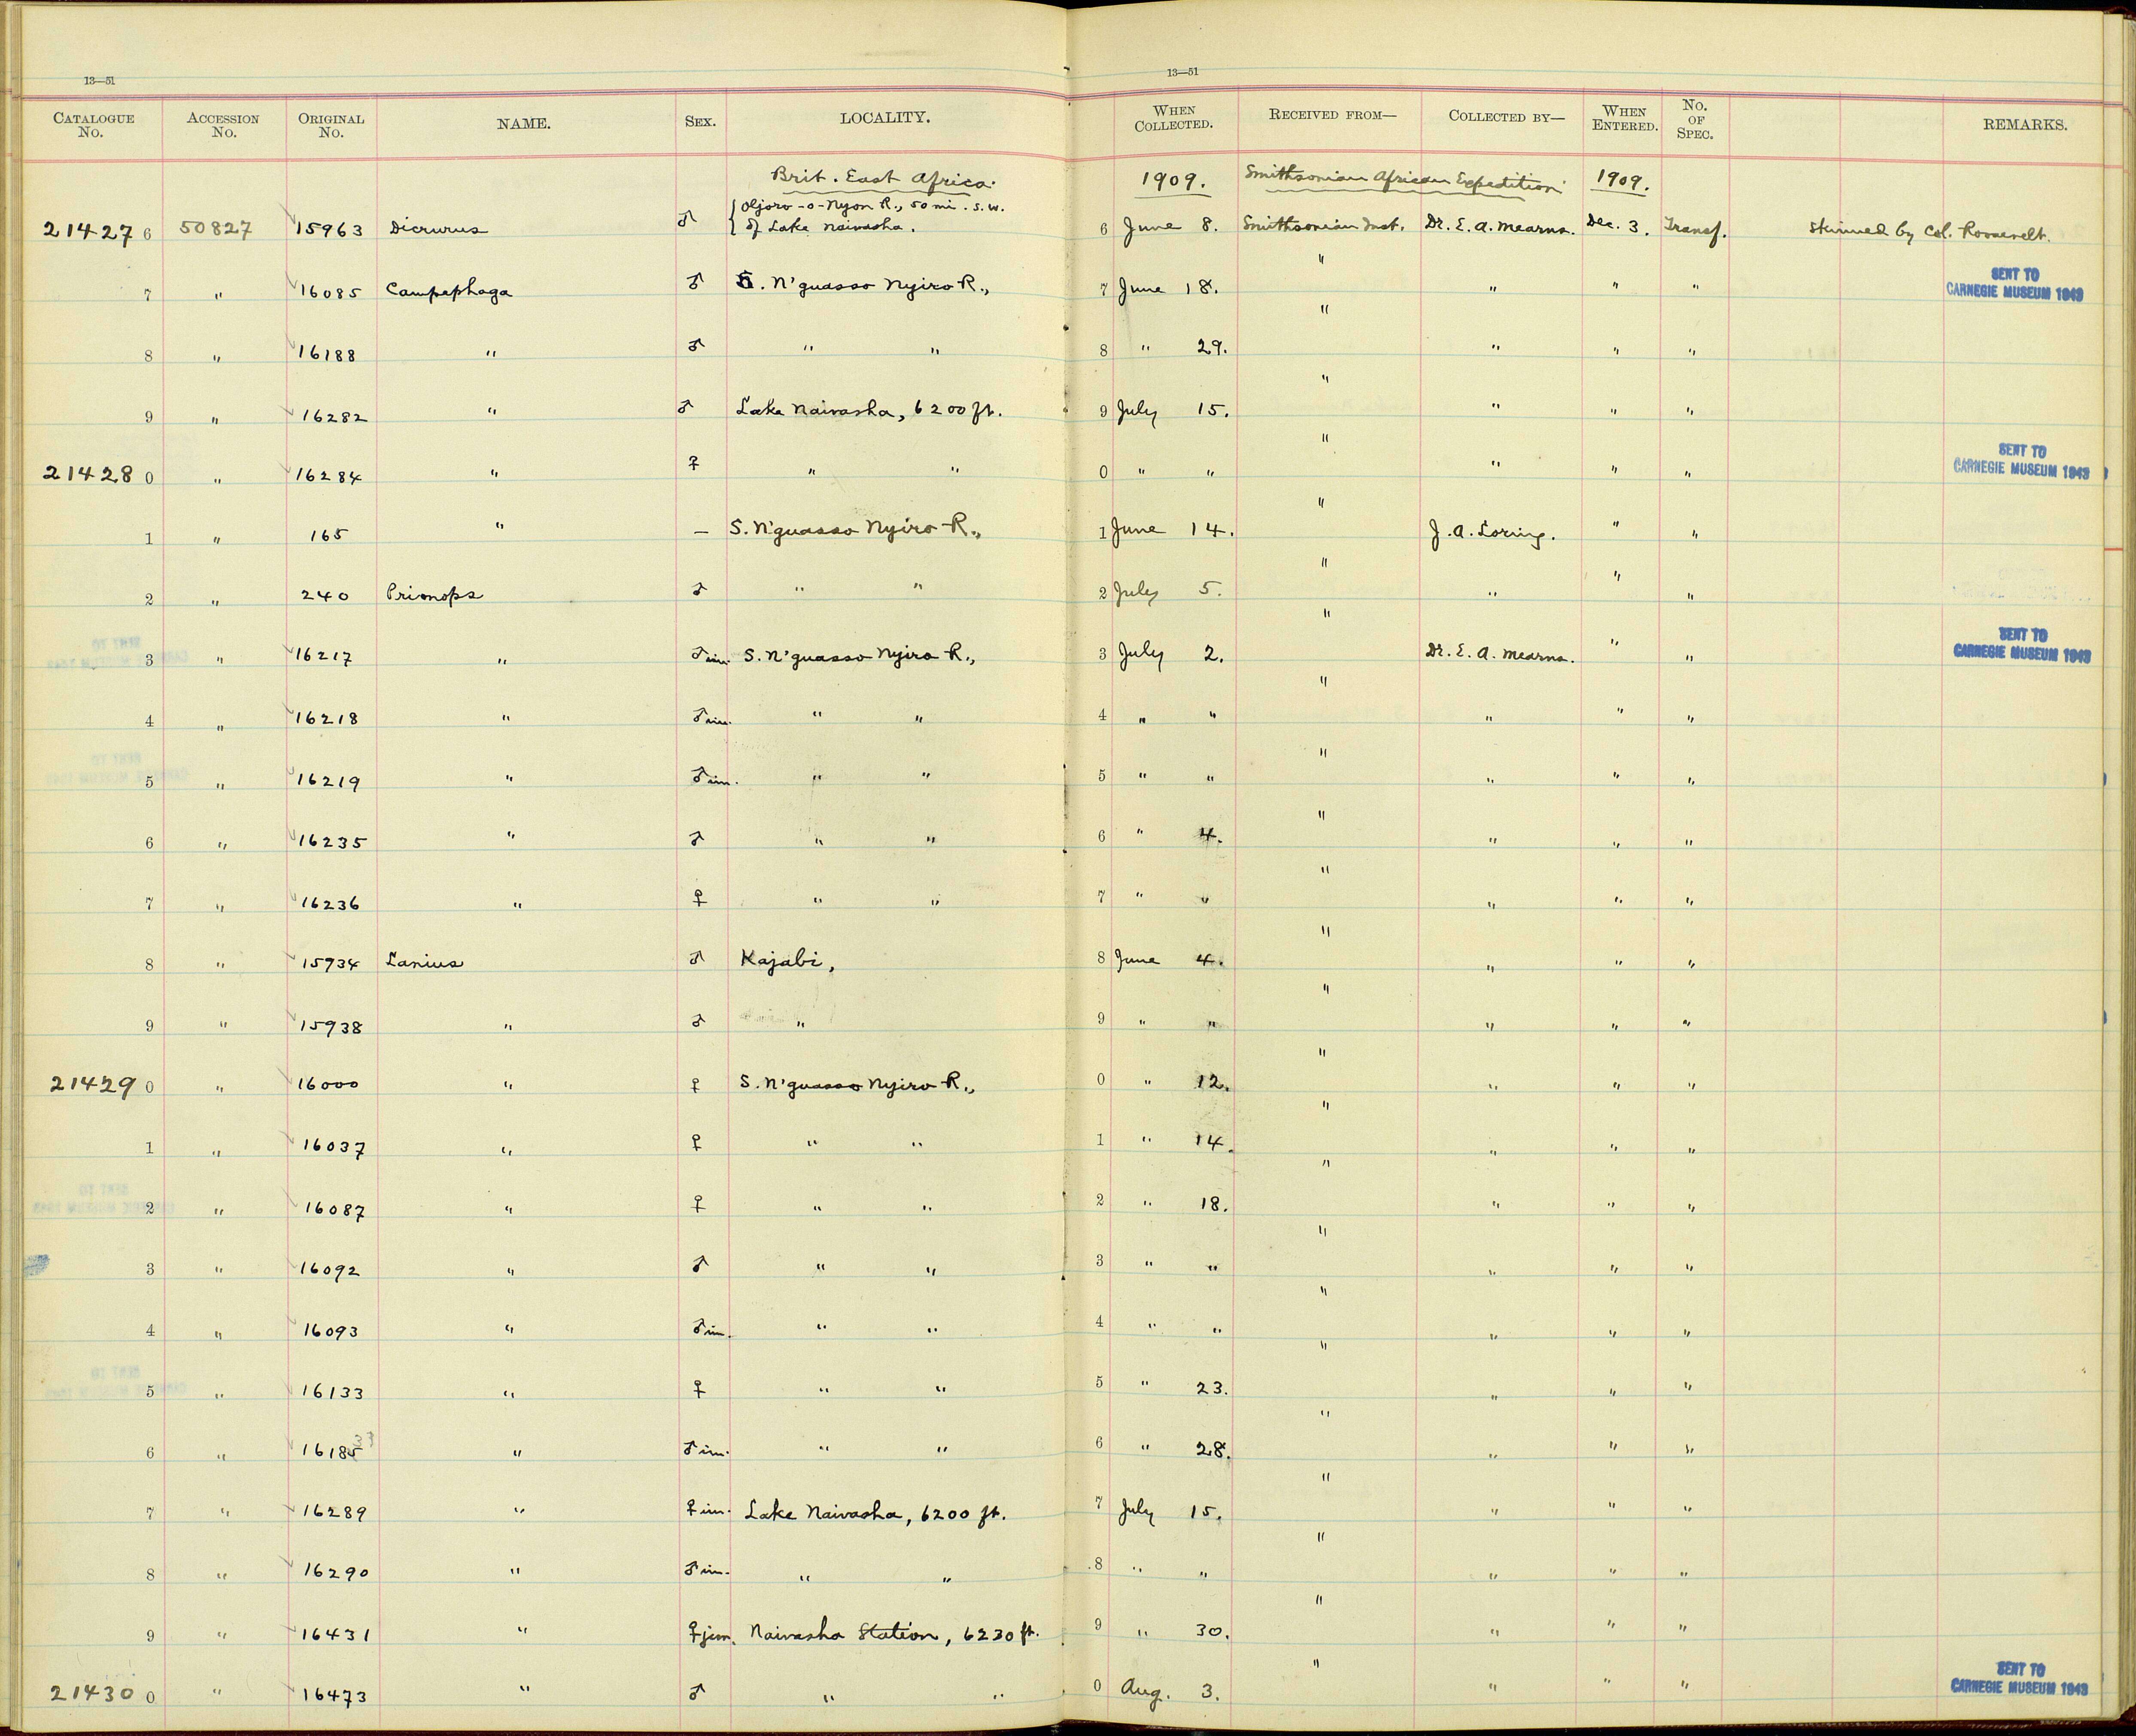 13—51
13—51
CATALOGUE No. ACCESSION No. ORIGINAL No. NAME. SEX. LOCALITY. WHEN COLLECTED. RECEIVED FROM— COLLECTED BY— WHEN ENTERED. No. OF SPEC. REMARKS.
Brit. East Africa. 1909. Smithsonian African Expedition 1909.
{ Oljoro-o-Nyon R., 50 mi. s.w.
214276 50827 15963 Dicrurus ♂ of Lake Naivasha. 6 June 8. Smithsonian Inst. Dr. E. A. Mearns. Dec. 3. Transf. Skinned by Col. Roosevelt.
7 " 16085 Campephaga ♂ S. N'guasso Nyiro R., 7 June 18. " " " " SENT TO CARNEGIE MUSEUM 1943
8 " 16188 " ♂ " " 8 " 29. " " " "
9 " 16282 " ♂ Lake Naivasha, 6200 ft. 9 July 15. " " " "
214280 " 16284 " ♀ " " 0 " " " " " " SENT TO CARNEGIE MUSEUM 1943
1 " 165 " — S. N'guasso Nyiro R., 1 June 14. " J. A. Loring. " "
2 " 240 Prionops ♂ " " 2 July 5. " " " "
3 " 16217 " ♂ im. S. N'guasso Nyiro R., 3 July 2. " Dr. E. A. Mearns. " " SENT TO CARNEGIE MUSEUM 1943
4 " 16218 " ♂ im. " " 4 " " " " " "
5 " 16219 " ♂ im. " " 5 " " " " " "
6 " 16235 " ♂ " " 6 " 4. " " " "
7 " 16236 " ♀ " " 7 " " " " " "
8 " 15934 Lanius ♂ Kajabi, 8 June 4. " " " "
9 " 15938 " ♂ " 9 " " " " " "
214290 " 16000 " ♀ S. N'guasso Nyiro R., 0 " 12. " " " "
1 " 16037 " ♀ " " 1 " 14. " " " "
2 " 16087 " ♀ " " 2 " 18. " " " "
3 " 16092 " ♂ " " 3 " " " " " "
4 " 16093 " ♂ im. " " 4 " " " " " "
5 " 16133 " ♀ " " 5 " 23. " " " "
6 " 16185 " ♂ im. " " 6 " 28. " " " "
7 " 16289 " ♀ im. Lake Naivasha, 6200 ft. 7 July 15. " " " "
8 " 16290 " ♂ im. " " 8 " " " " " "
9 " 16431 " ♀ Naivasha Station, 6230 ft. 9 " 30. " " " "
214300 " 16473 " ♂ " " 0 Aug. 3. " " " " SENT TO CARNEGIE MUSEUM 1943